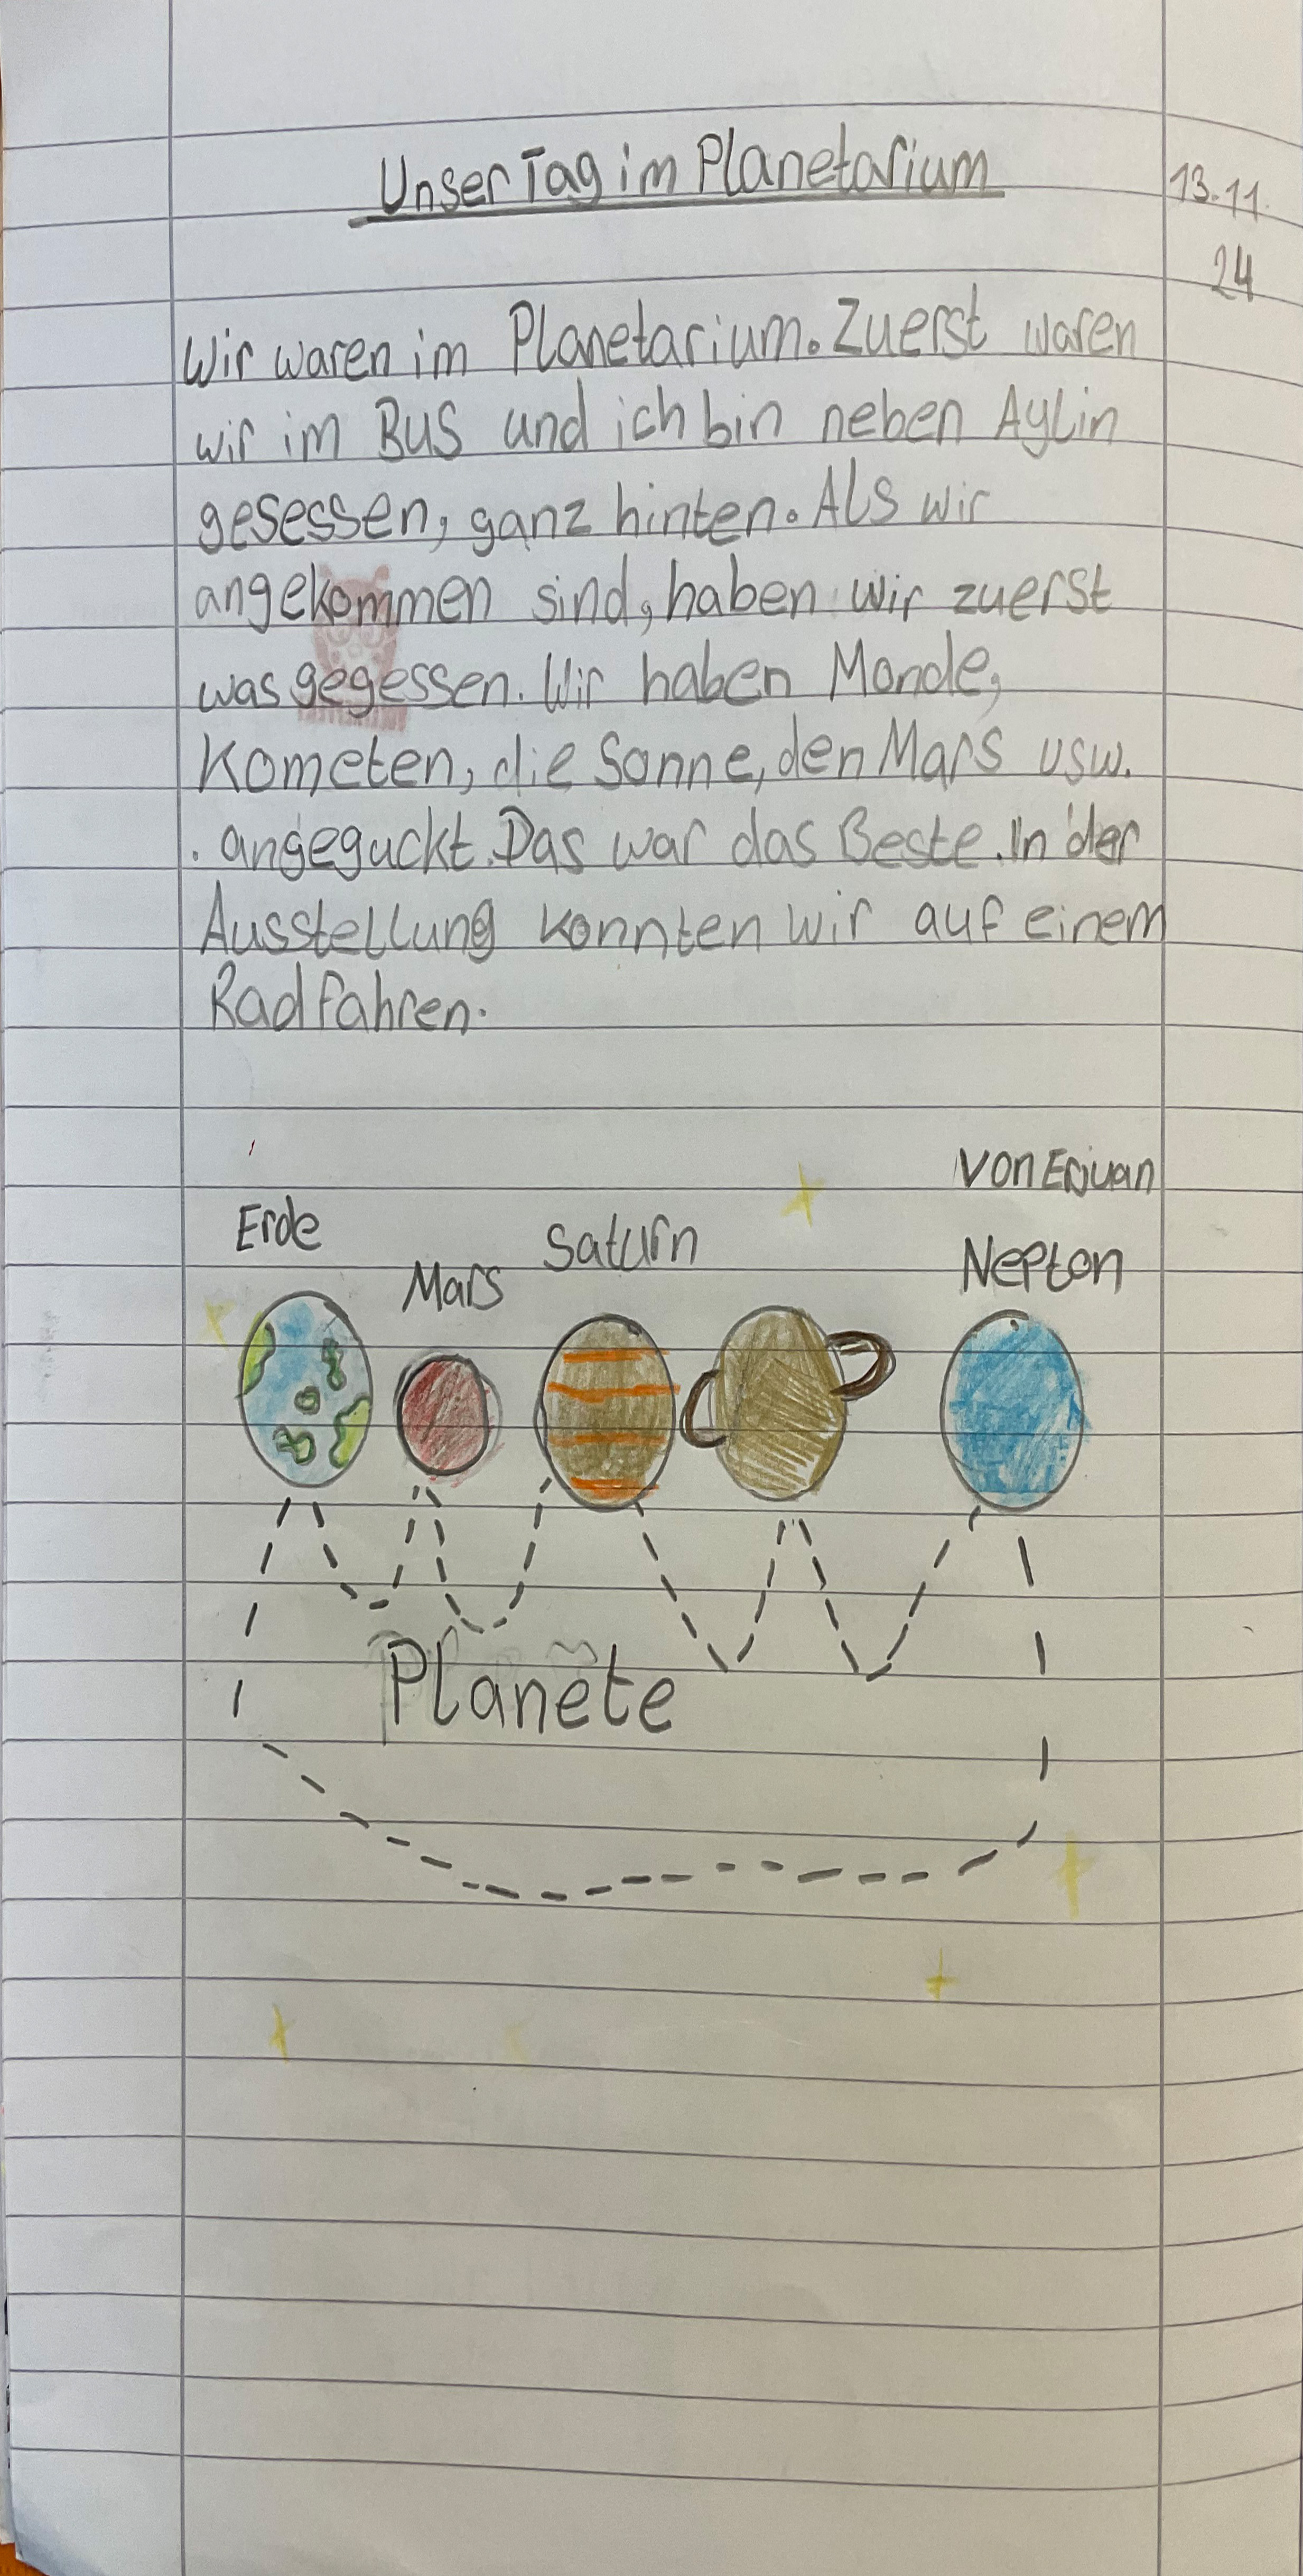 Unser Tag im Planetarium
13.11.
24
Wir waren im Planetarium. Zuerst waren
wir im Bus und ich bin neben Aylin
gesessen, ganz hinten. Als wir
angekommen sind, haben wir zuerst
was gegessen. Wir haben Monde,
Kometen, die Sonne, den Mars usw.
angeguckt. Das war das Beste. In der
Ausstellung konnten wir auf einem
Rad fahren.
von
Erde
Mars
Saturn
Nepton
Planete